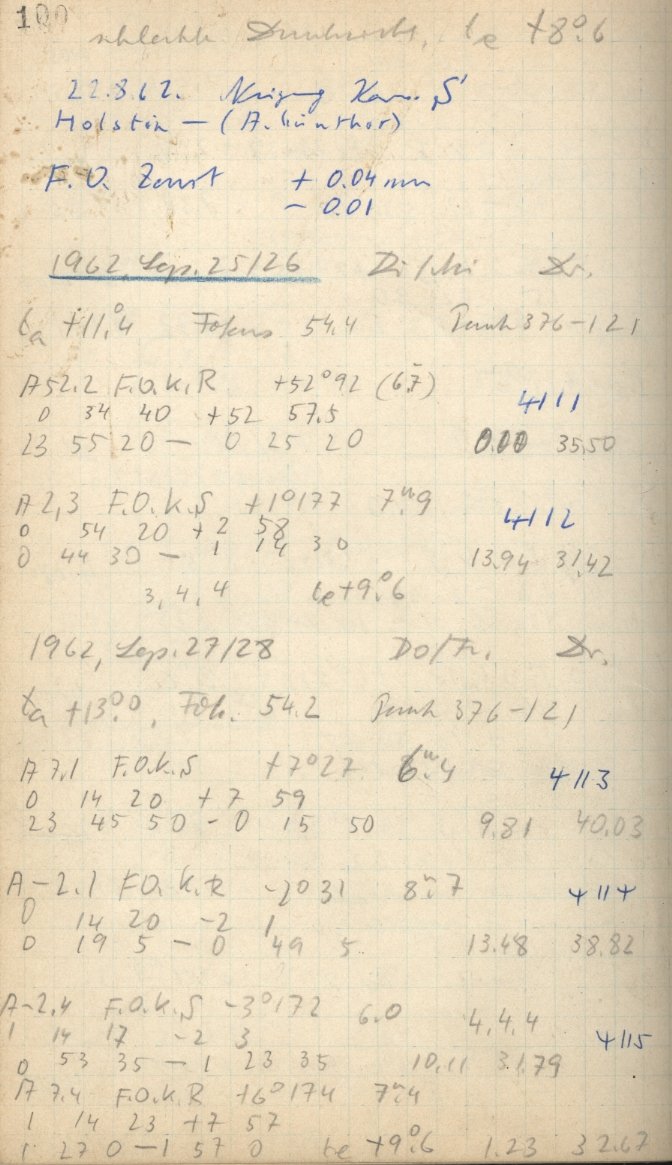 100
schlechte Durchsicht, te +8°.6
22.8.62. Neigung Kam. S
Holstin — (A. Günther)
F.O. Zonst + 0.04 mm
– 0.01
1962, Sep. 25/26 Di/Mi Dr.
ta +11°.4 Fokus 54.4 376–121
A 52.2 F.O.K.R +52°92 (6.7)
0 34 40 +52 57.5 4111
23 55 20 — 0 25 20 0.00 35.50
A 2,3 F.O.K.S +1°177 7m.9
0 54 20 +2 58 4112
0 44 30 — 1 14 30 13.94 31.42
3, 4, 4 te +9°.6
1962, Sep. 27/28 Do/Fr. Dr.
ta +13°.0, Fok. 54.2 376–121
A 7,1 F.O.K.S +7°27 6m.4
0 14 20 +7 59 4113
23 45 50 – 0 15 50 9.81 40.03
A –2.1 F.O.K.R –2°31 8m.7
0 14 20 –2 1 4114
0 19 5 — 0 49 5 13.48 38.82
A –2,4 F.O.K.S –3°172 6.0 4,4,4
1 14 17 –2 3 4115
0 53 35 — 1 23 35 10.11 31.79
A 7.4 F.O.K.R +6°174 7m.4
1 14 23 +7 57
1 27 0 — 1 57 0 te +9°.6 1.23 32.67